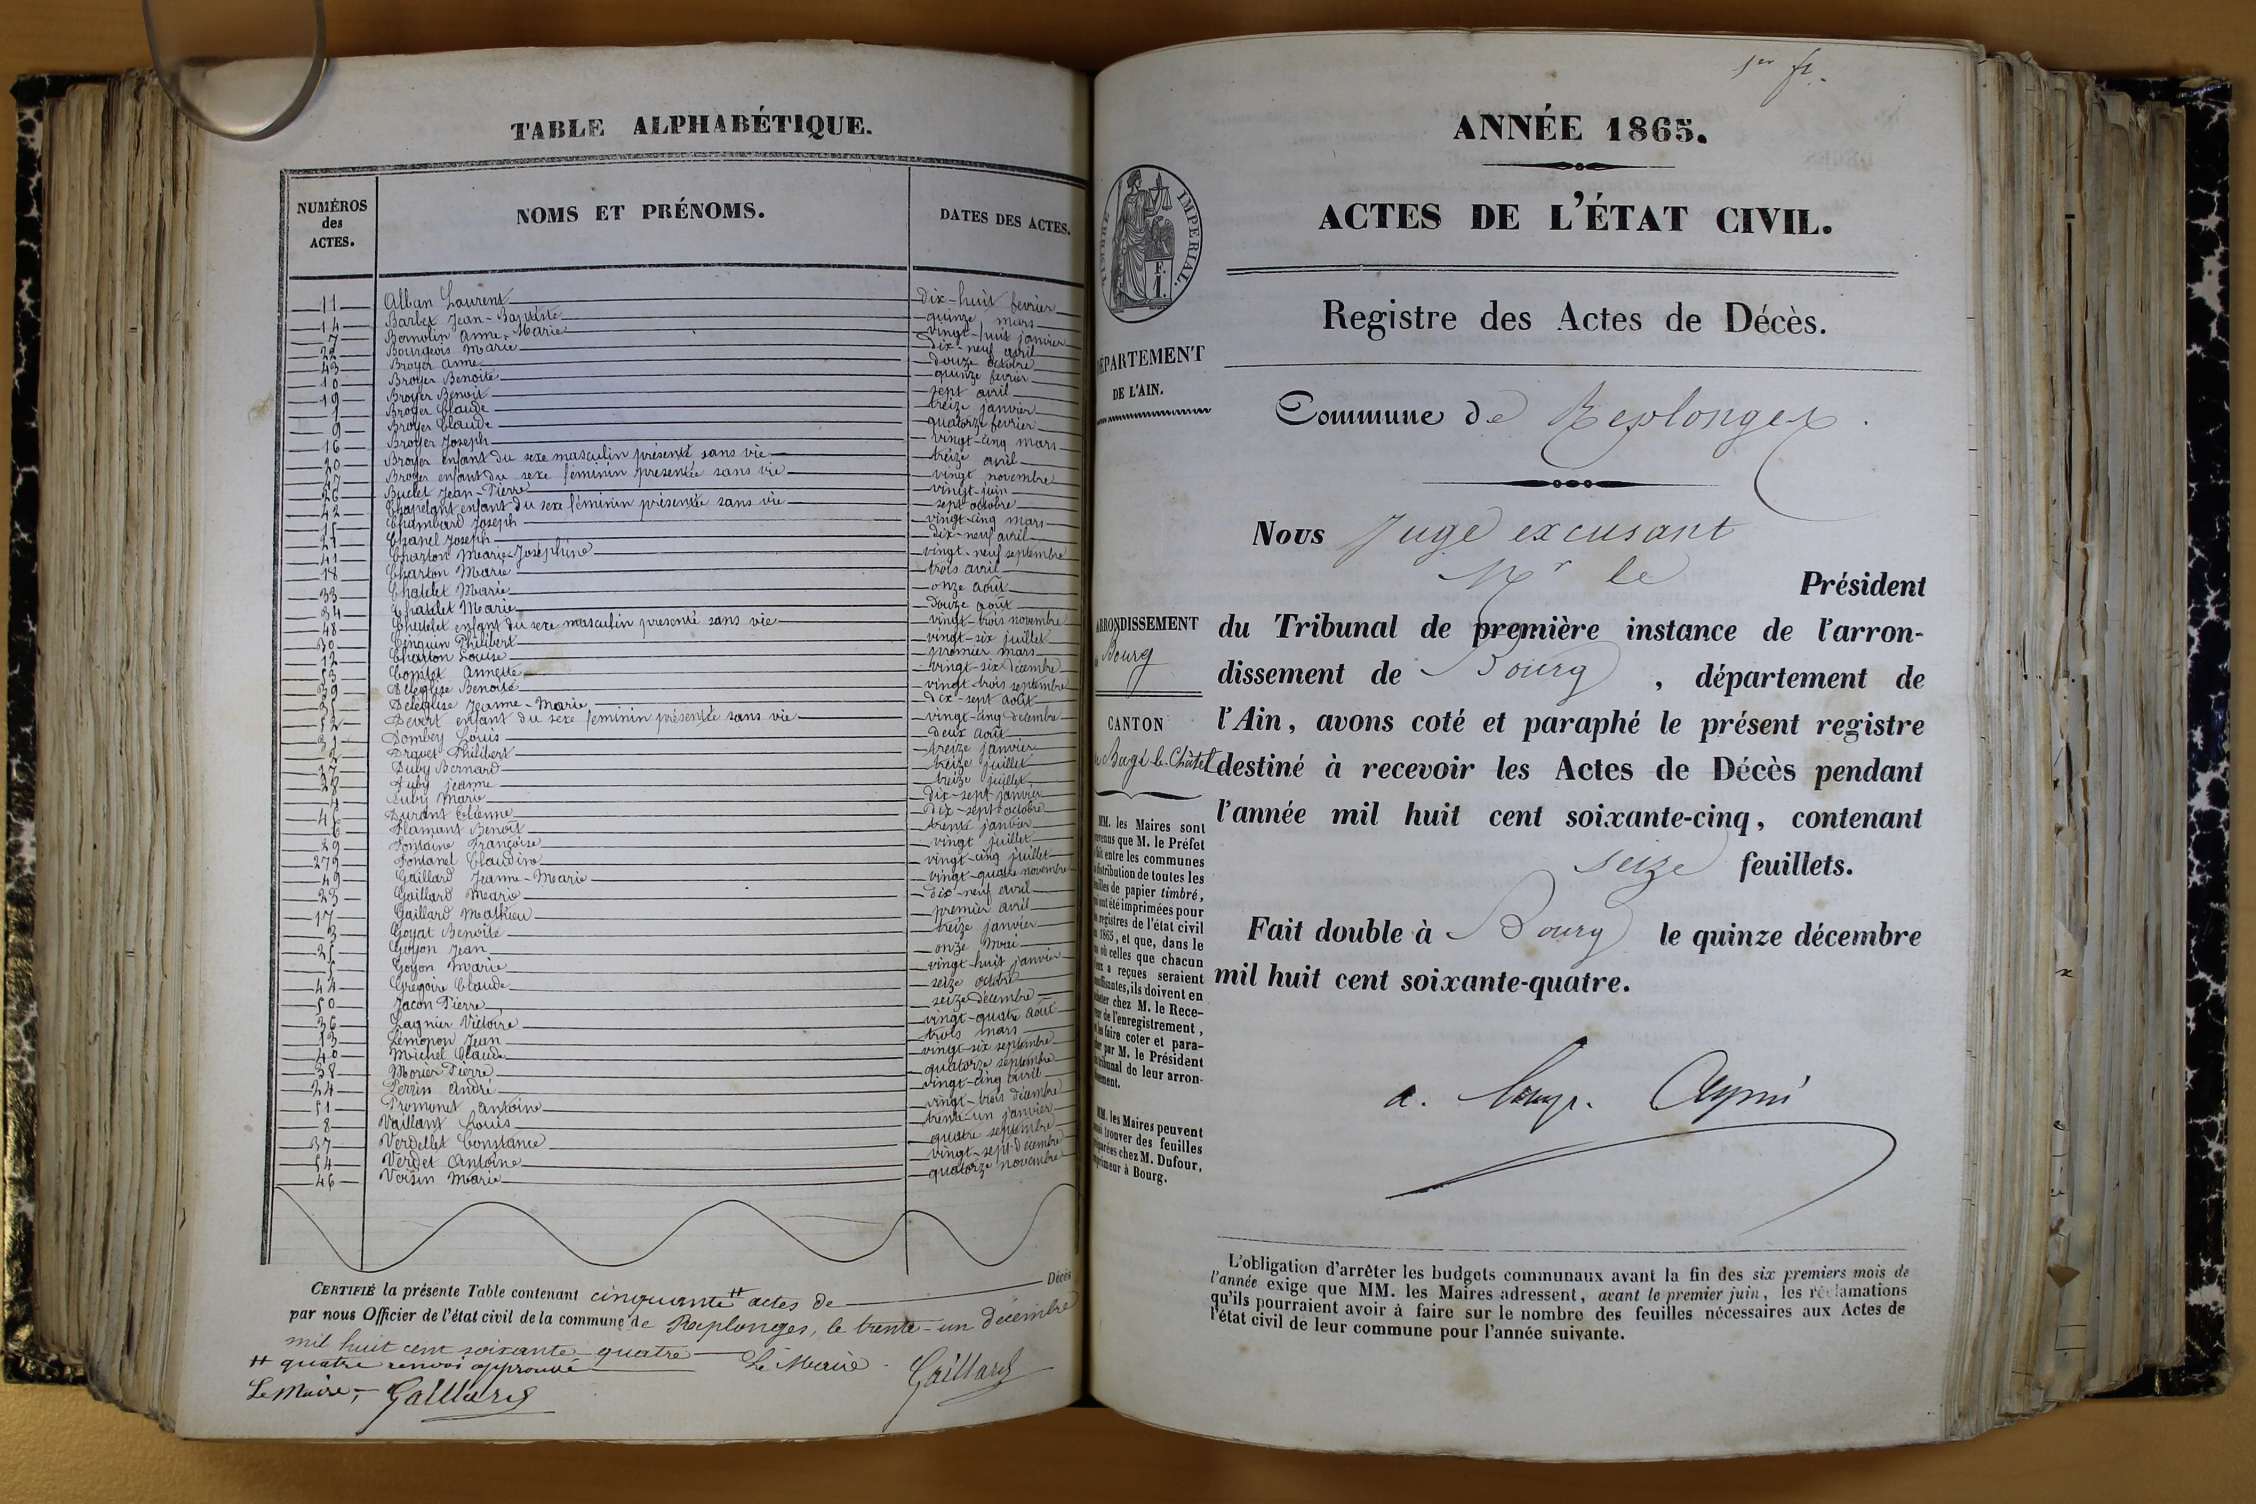 TABLE ALPHABÉTIQUE.
NUMÉROS des ACTES. NOMS ET PRÉNOMS. DATES DES ACTES.
11 Alban Laurent dix-huit fevrier
14 Barbet Jean-Baptiste quinze mars
7 Bernolin Anne-Marie vingt-huit janvier
22 Bourgeois Marie dix-neuf avril
43 Broyer Anne douze octobre
10 Broyer Benoite quinze fevrier
19 Broyer Benoit sept avril
1 Broyer Claude treize janvier
9 Broyer Claude quatorze fevrier
16 Broyer Joseph vingt-cinq mars
20 Broyer enfant du sexe masculin présenté sans vie treize avril
47 Broyer enfant du sexe féminin présentée sans vie vingt novembre
26 Buclet Jean-Pierre vingt-juin
42 Chapelant enfant du sexe féminin présentée sans vie sept octobre
15 Chambard Joseph vingt-cinq mars
21 Chanel Joseph dix-neuf avril
41 Charton Marie-Joséphine vingt-neuf septembre
18 Charton Marie trois avril
33 Chatelet Marie onze août
34 Chatelet Marie douze août
48 Chatelet enfant du sexe masculin présenté sans vie vingt-trois novembre
30 Cinquin Philibert vingt-six juillet
12 Charton Louise premier mars
53 Comtet Annette vingt-six décembre
39 Deléglise Benoite vingt trois septembre
35 Deléglise Jeanne-Marie dix-sept août
52 Devert enfant du sexe féminin présentée sans vie vingt-cinq decembre
31 Dombey Louis deux août
2 Draguet Philibert treize janvier
27 Duby Bernard treize juillet
28 Duby Jeanne treize juillet
4 Duby Marie dix-sept janvier
45 Durant Etienne dix-sept octobre
6 Flamant Benoit trente janvier
29 Fontaine Françoise vingt juillet
279 Fontanel Claudine vingt-cinq juillet
49 Gaillard Jeanne-Marie vingt-quatre novembre
23 Gaillard Marie dix-neuf avril
17 Gaillard Mathieu premier avril
3 Goyat Benoite treize janvier
25 Goyon Jean onze Mai
5 Goyon Marie vingt-huit janvier
44 Grégoire Claude seize octobre
50 Jacon Pierre seize décembre
36 Lagnier Victoire vingt-quatre août
13 Lémonon Jean trois mars
40 Michel Claude vingt-six septembre
38 Monier Pierre quatorze septembre
24 Perrin André vingt-cinq avril
51 Promonet Antoine vingt-trois décembre
8 Vaillant Louis trente-un janvier
37 Verdellet Constance quatre septembre
54 Verdet Antoine vingt-sept décembre
46 Voisin Marie quatorze novembre
CERTIFIÉ la présente Table contenant cinquante ++ actes de Décès
par nous Officier de l'état civil de la commune de Replonges, le trente-un décembre
mil huit cent soixante quatre
++ quatre renvoi approuvé Le Maire
Le Maire, Gaillard Gaillard
1er f.
ANNÉE 1865.
ACTES DE L'ÉTAT CIVIL.
TIMBRE IMPÉRIAL.
Registre des Actes de Décès.
DÉPARTEMENT
DE L'AIN.
Commune de Replonges
Nous Juge excusant
Mr le Président
du Tribunal de première instance de l'arron-
dissement de Bourg, département de
l'Ain, avons coté et paraphé le présent registre
destiné à recevoir les Actes de Décès pendant
l'année mil huit cent soixante-cinq, contenant
seize feuillets.
Fait double à Bourg le quinze décembre
mil huit cent soixante-quatre.
ARRONDISSEMENT
Bourg
CANTON
Bagé-le-Châtel
MM. les Maires sont
que M. le Préfet
entre les communes
distribution de toutes les
de papier timbré,
été imprimées pour
registres de l'état civil
1865, et que, dans le
où celles que chacun
a reçues seraient
ils doivent en
chez M. le Rece-
de l'enregistrement,
faire coter et para-
par M. le Président
tribunal de leur arron-
MM. les Maires peuvent
trouver des feuilles
chez M. Dufour,
à Bourg.
L'obligation d'arrêter les budgets communaux avant la fin des six premiers mois de
l'année exige que MM. les Maires adressent, avant le premier juin, les réclamations
qu'ils pourraient avoir à faire sur le nombre des feuilles nécessaires aux Actes de
l'état civil de leur commune pour l'année suivante.